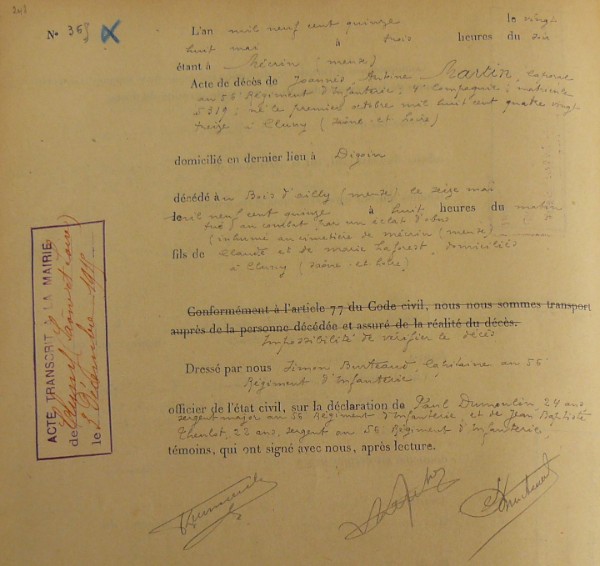 L'an mil neuf cent quinze le vingt
N° 363
huit mai à trois heures du soir
étant à Mécrin (meuse)
Acte de décès de Joannès Antoine Martin, caporal
au 56e Régiment d'Infanterie; 4e Compagnie; matricule
5319; né le premier octobre mil huit cent quatre vingt
treize à Cluny (Saône-et-Loire)
domicilié en dernier lieu à Digoin
décédé au Bois d'ailly (meuse) le seize mai
mil neuf cent quinze à huit heures du matin
tué au combat par un éclat d'obus
(inhumé au cimetière de mécrin (meuse)
fils de Claude et de marie Laforest, domiciliés
à Cluny (Saône-et-Loire)
Conformément à l'article 77 du Code civil, nous nous sommes transport
auprès de la personne décédée et assuré de la réalité du décès.
Impossibilité de vérifier le décès
Dressé par nous Simon Burteaud, Capitaine au 56e
Régiment d'Infanterie
officier de l'état civil, sur la déclaration de Paul Dumoulin 24 ans
sergent major au 56 Régiment d'Infanterie et de Jean Baptiste
22 ans, sergent au 56e Régiment d'Infanterie,
témoins, qui ont signé avec nous, après lecture.
ACTE TRANSCRIT À LA MAIRIE
de
le 2 Décembre 1915